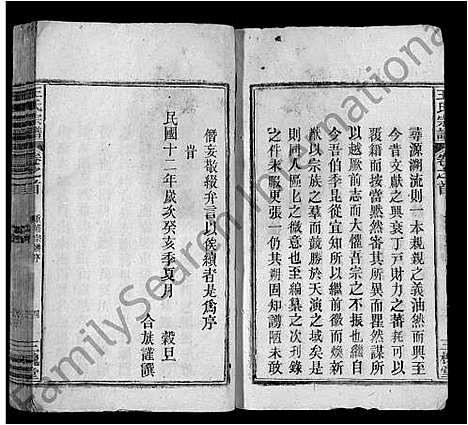 王氏宗譜
卷之首
尋源溯流則一本親親之義油然而興至
今昔文獻之興衰丁戸財力之蕃耗可以
覆籍而按當黙然審其所異而瞿然謀所
以越厥前志而大懼吾宗之不振也繼自
今吾伯季昆從宜知所以繼前徽而煥新
猷以宗族之羣而競勝於天演之域矣是
則同人區區之微意也至編纂之次刊錄
之件未暇更張一仍其朔固知譾陋未敢
僭妄敬綴弁言以俟續者是爲序
旹
民國十二年歲次癸亥季夏月　穀旦
合族謹撰
王氏宗譜
卷之首
四
三槐堂
FamilySearch International